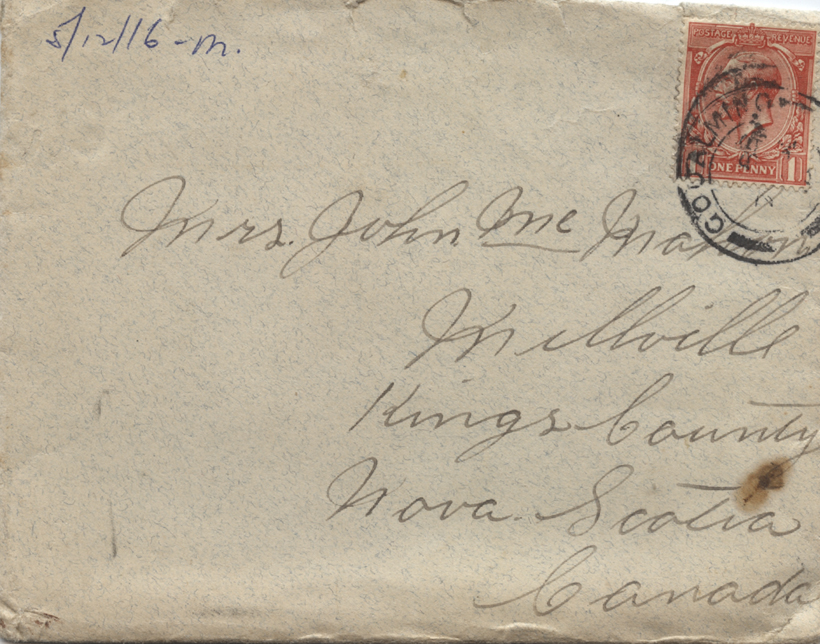 5/12/16 - m.
POSTAGE REVENUE
ONE PENNY 1
GODALMING
Mrs. John Mc
Millville
Kings County
Nova Scotia
Canada